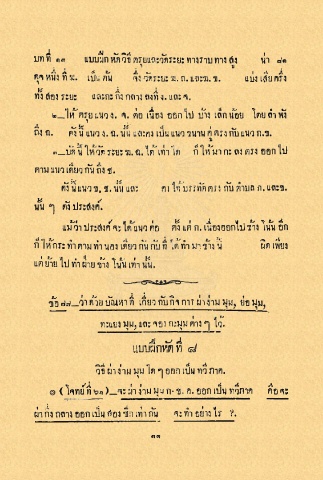 บท ที่ ๑๓ แบบฝึก หัด วิธี ตรุยและวัดระยะ ทางราบ ทาง สูง น่า ๘๑
ดุจ หนึ่ง ที่ ฆ. เป็น ต้น จึ่ง วัดระยะ ฆ. ก. และฆ. ข. แบ่ง เสีย ครึ่ง
ทั้ง สอง ระยะ และกะ กึ่ง กลาง ลงที่ ง. และ จ.
๒_ให้ ตรุย แนว ง. จ. ต่อ เนื่อง ออก ไป บ้าง เล็ก น้อย โดย ลำ พัง
ถึง ฉ. ดัง นี้ แนว ง. ฉ. นั้น และคง เป็น แนว ขนาน คู่ ตรง กับ แนว ก. ข.
๓_บัด นี้ ให้ วัด ระยะ ฆ. ฉ. ได้ เท่า ใด ก็ ให้ มา กะ ลง ตรง ออก ไป
ตาม แนว เดียว กัน ถึง ช.
ดัง นั้น แนว ข. ช. นั้น และ คา ให้ บรรทัด ตรง กับ ตำบล ก. และข.
นั้น ๆ ดัง ประสงค์.
แม้ว่า ประสงค์ จะ ได้ แนว ต่อ ตั้ง แต่ ก. เนื่องออกไป ข้าง โน้น อีก
ก็ ให้ กระ ทำ ตาม ทำ นอง เดียว กัน กับ ที่ ได้ ทำ มา ข้าง นี้ ผิด เพียง
แต่ ย้าย ไป ทำ ฝ่าย ข้าง โน้น เท่า นั้น.
ข้อ ๗๗_ว่า ด้วย ปัญหา ที่ เกี่ยว กับ กิจ การ ผ่า ง่าม มุม, ย่อ มุม,
ทะแยง มุม, และ จอง กะ มุม ต่าง ๆ ไว้.
แบบฝึกหัด ที่ ๘
วิธี ผ่า ง่าม มุม ใด ๆ ออก เป็น ทวีภาค.
๑ (โจทย์ ที่ ๖๑)_จะ ผ่า ง่าม มุม ก. ข. ค. ออก เป็น ทวีภาค คือ จะ
ผ่า กึ่ง กลาง ออก เป็น สอง ซีก เท่า กัน จะ ทำ อย่าง ไร ?.
๑๑